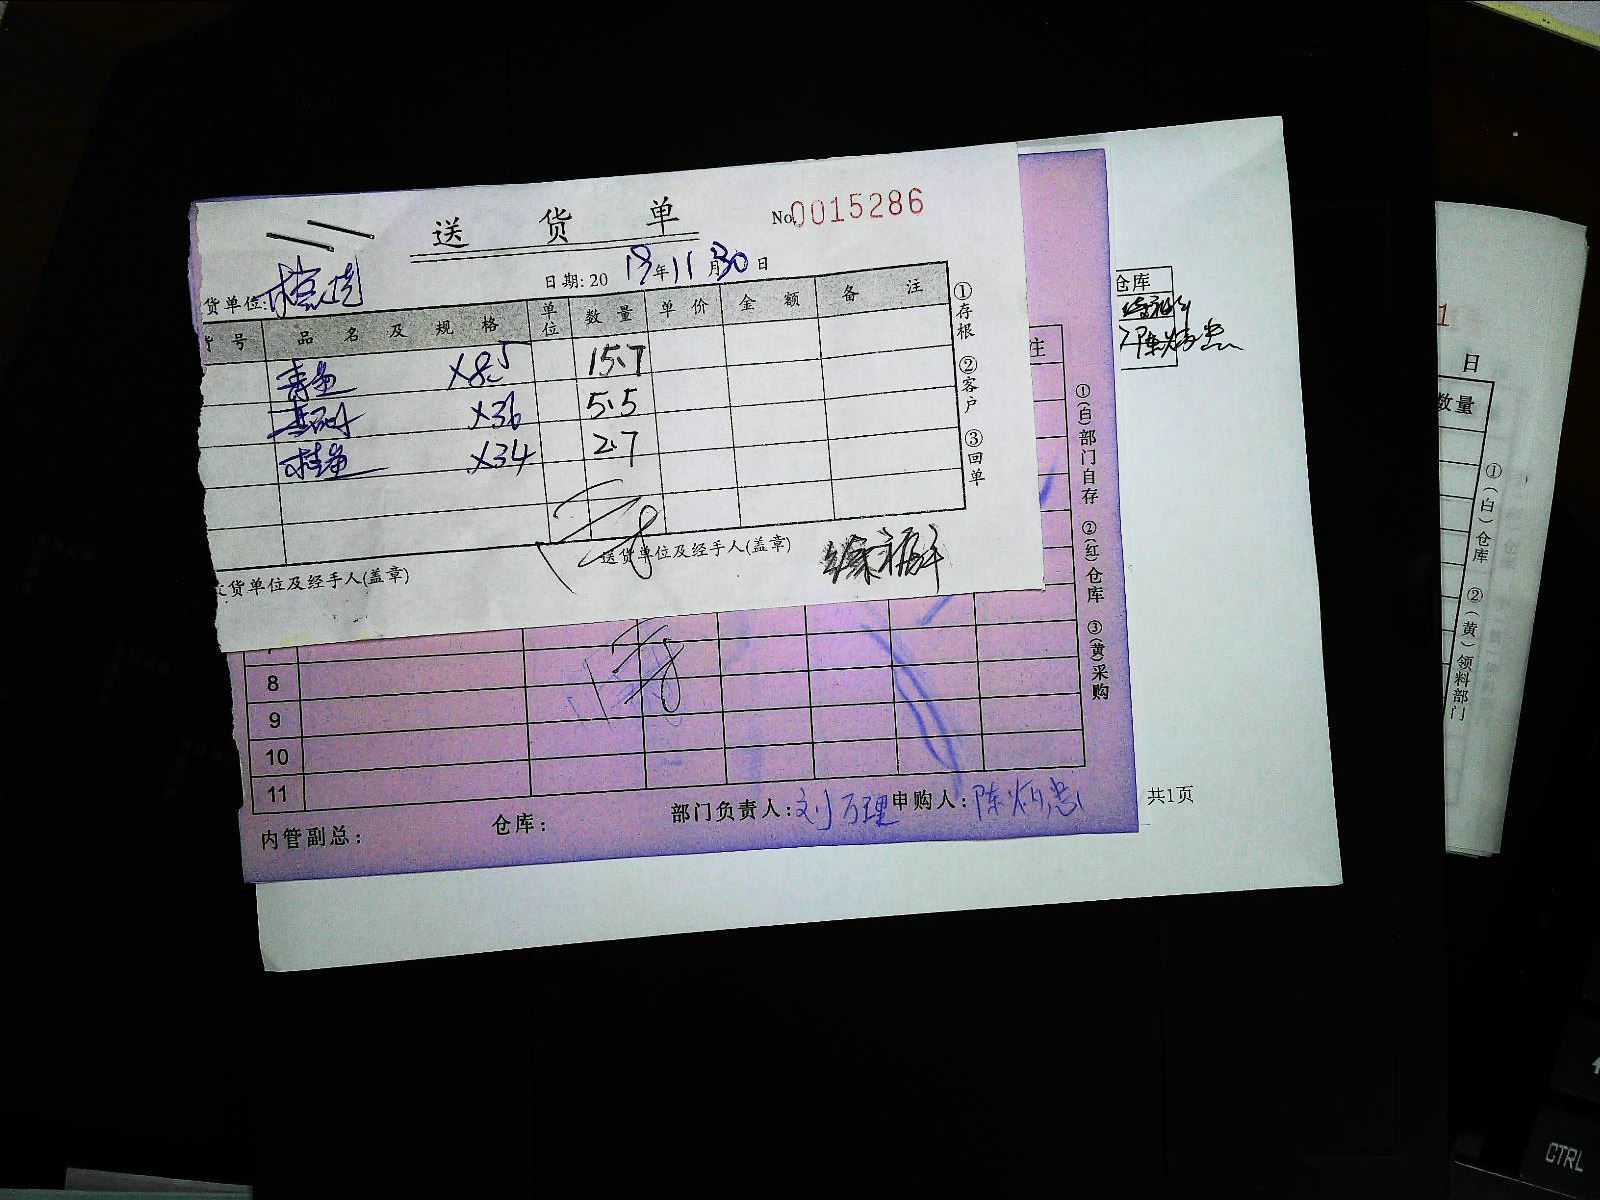 送 货 单
No.0015286
货单位:
日期: 20 年11月30日
号 品 名 及 规 格 单位 数 量 单 价 金 额 备 注
青鱼 ×8.5 15.7
×36 5.5
桂鱼 ×34 2.7
①存根 ②客户 ③回单
货单位及经手人(盖章)
送货单位及经手人(盖章)
注
8
9
10
11
①(白)部门自存 ②(红)仓库 ③(黄)采购
内管副总:
仓库:
部门负责人:刘万理
申购人:陈炳忠
仓库
共1页
1
日
数量
①(白)仓库 ②(黄)领料部门
CTRL